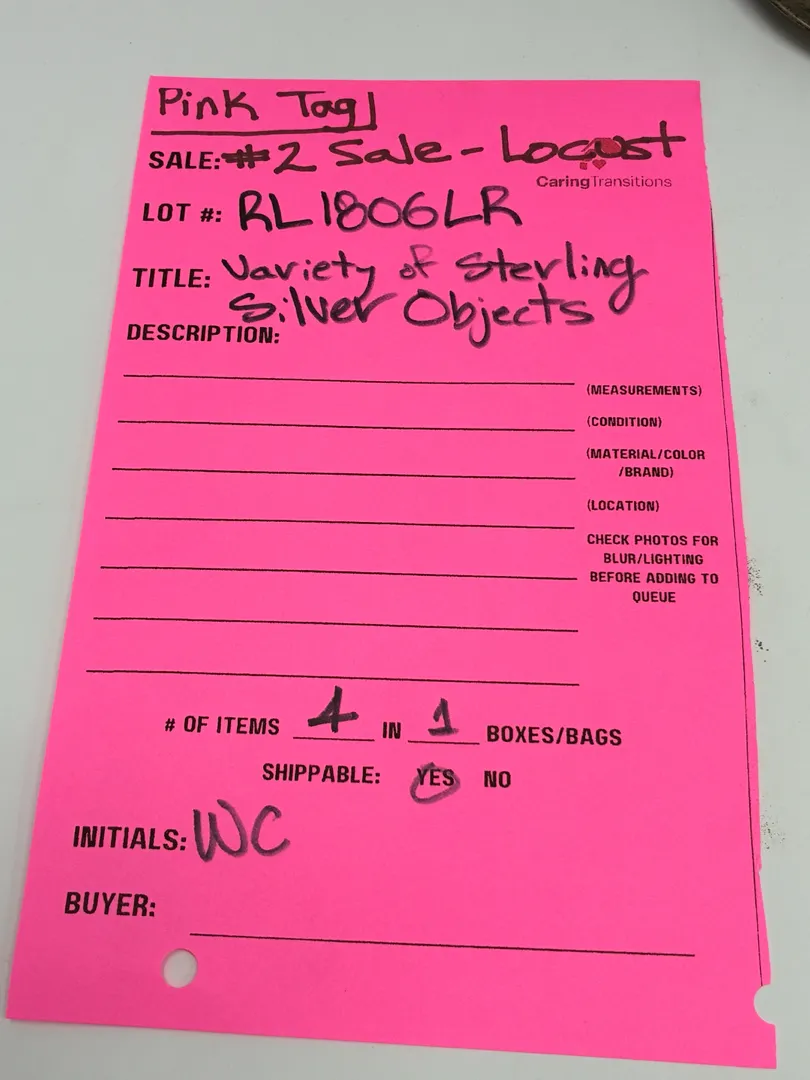 Pink Tag
SALE: #2 Sale - Locust
CaringTransitions
LOT #: RL1806LR
TITLE: Variety of Sterling
Silver Objects
DESCRIPTION:
(MEASUREMENTS)
(CONDITION)
(MATERIAL/COLOR
/BRAND)
(LOCATION)
CHECK PHOTOS FOR
BLUR/LIGHTING
BEFORE ADDING TO
QUEUE
# OF ITEMS 4 IN 1 BOXES/BAGS
SHIPPABLE: YES NO
INITIALS: WC
BUYER: